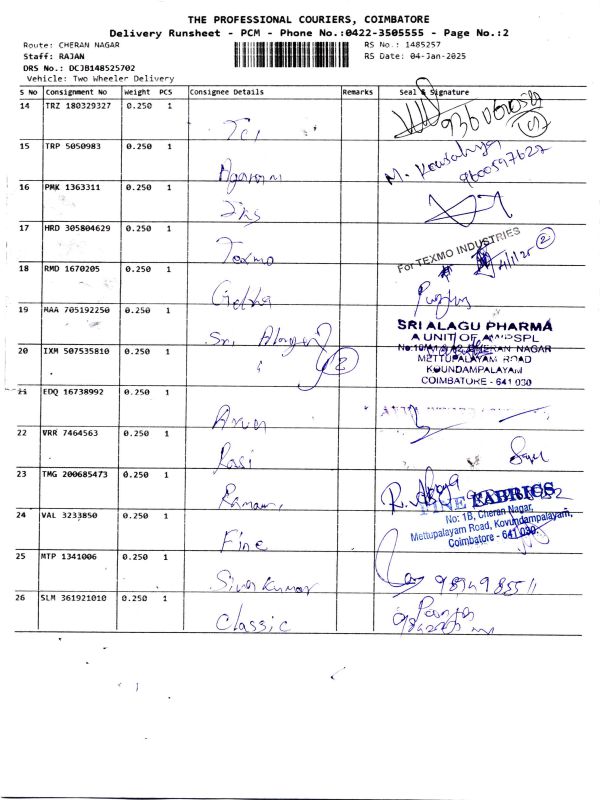 THE PROFESSIONAL COURIERS, COIMBATORE
Delivery Runsheet - PCM - Phone No.:0422-3505555 - Page No.:2
Route: CHERAN NAGAR RS No.: 1485257
Staff: RAJAN RS Date: 04-Jan-2025
DRS No.: DCJB148525702
Vehicle: Two Wheeler Delivery
S No Consignment No Weight PCS Consignee Details Remarks Seal & Signature
14 TRZ 180329327 0.250 1
TCI
15 TRP 5050983 0.250 1
M. Kowsalya
9600597622
16 PMK 1363311 0.250 1
17 HRD 305804629 0.250 1
Texmo
For TEXMO INDUSTRIES
4/1/25 2
18 RMD 1670205 0.250 1
19 MAA 705192250 0.250 1
Sri Alagu
2
SRI ALAGU PHARMA
A UNIT OF
CHERAN NAGAR
METTUPALAYAM ROAD
KOUNDAMPALAYAM
COIMBATORE - 641 030
20 IXM 507535810 0.250 1
21 EDQ 16738992 0.250 1
Arun
22 VRR 7464563 0.250 1
Rasi
23 TMG 200685473 0.250 1
24 VAL 3233850 0.250 1
Fine
FINE FABRICS
No: 1B, Cheran Nagar,
Mettupalayam Road, Kovundampalayam,
Coimbatore - 641 030.
25 MTP 1341006 0.250 1
Sivakumar
26 SLM 361921010 0.250 1
Classic